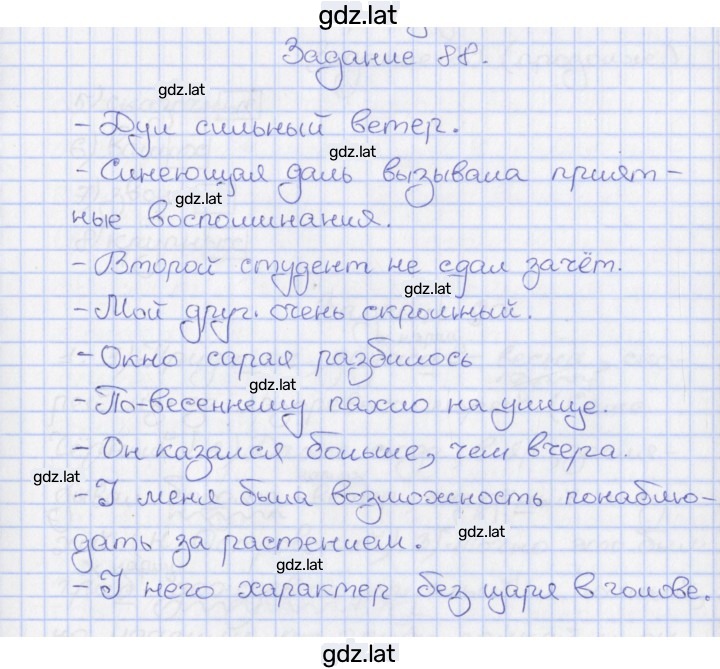 gdz.lat
Задание 88.
gdz.lat
- Дул сильный ветер.
gdz.lat
- Синеющая даль вызывала прият-
gdz.lat
ные воспоминания.
- Второй студент не сдал зачёт.
gdz.lat
- Мой друг. очень скромный.
- Окно сарая разбилось
gdz.lat
- По-весеннему пахло на улице.
- Он казался больше, чем вчера.
gdz.lat
- У меня была возможность понаблю-
gdz.lat
дать за растением.
gdz.lat
- У него характер без царя в голове.
gdz.lat